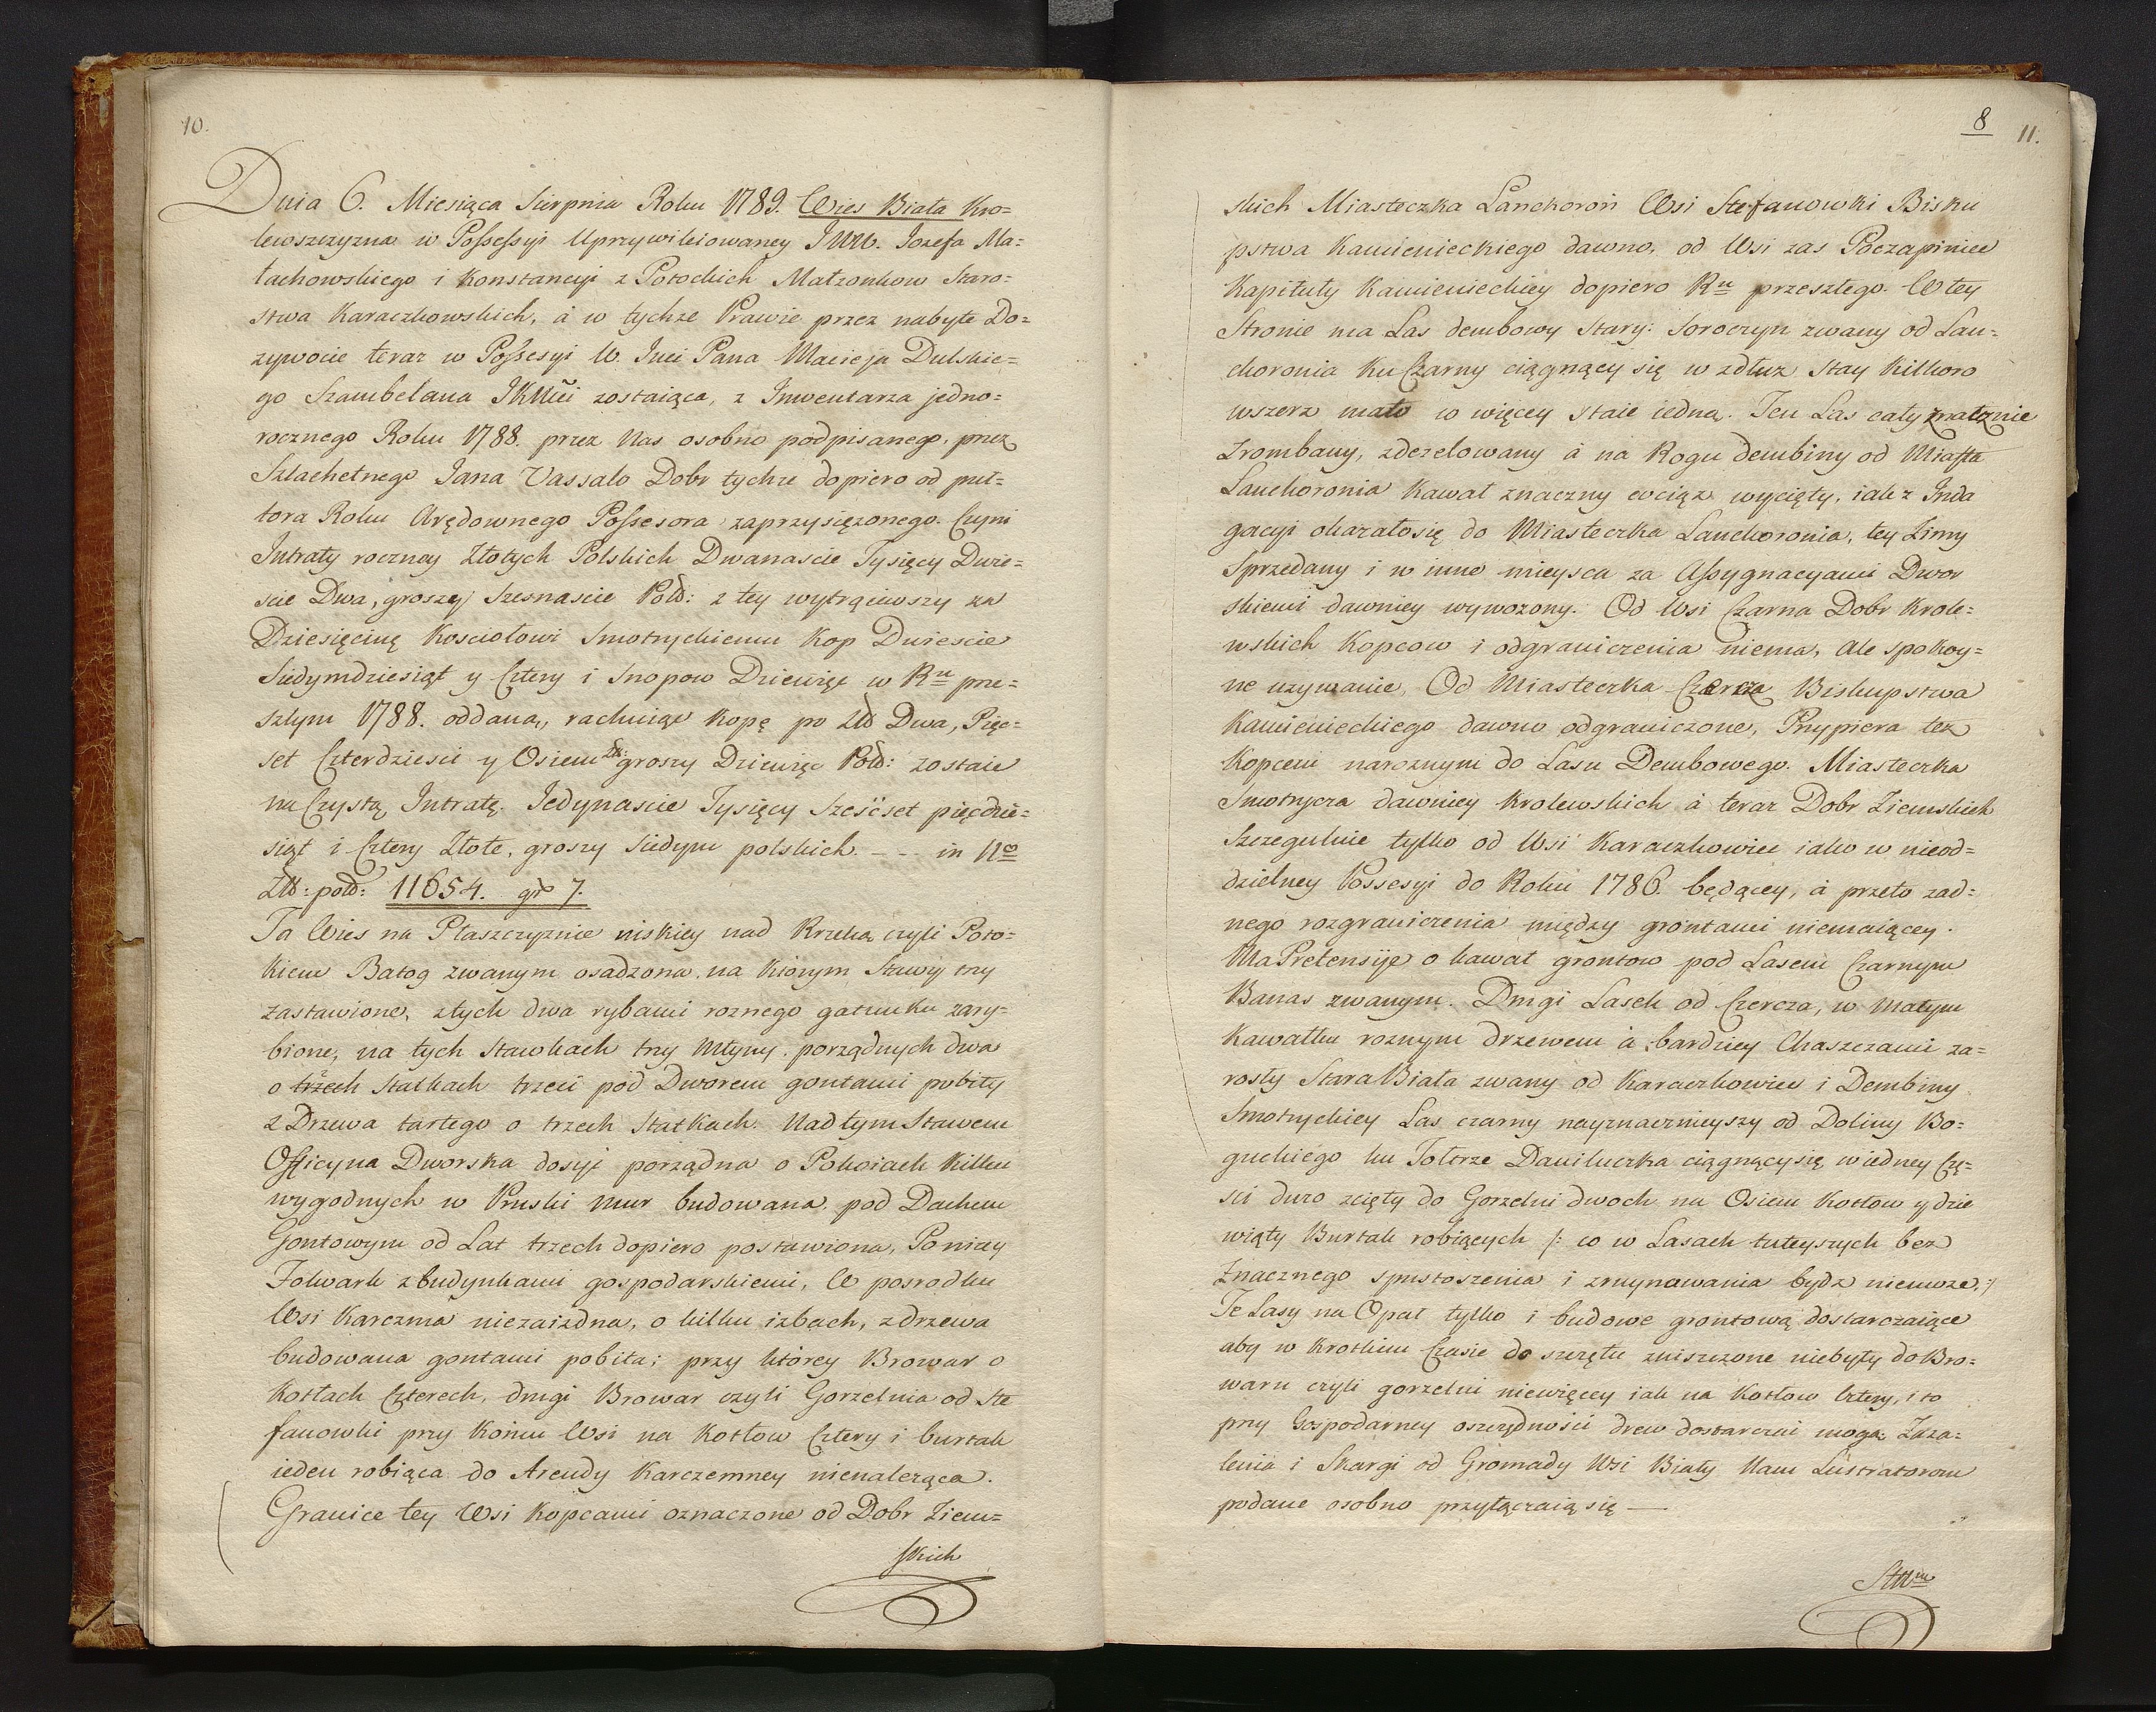 10.
Dnia 6. Miesiąca Sierpnia Roku 1789. Wies Biała Kro=
lewszczyzna w Possessyi Uprzywileiowaney JWW. Jozefa Ma=
łachowskiego i Konstancyi z Potockich Małzonkow Staro=
stwa Karaczkowskich, á w tychze Prawie przez nabyte Do=
zywocie teraz w Possesyi W. Jmci Pana Macieja Dulskie=
go Szambelana JKMci zostaiąca, z Inwentarza jedno=
rocznego Roku 1788. przez Nas osobno podpisanego, przez
Szlachetnego Jana Vassalo Dobr tychze dopiero od puł=
tora Roku Arędownego Possesora zaprzysięzonego. Czyni
Intraty roczney Złotych Polskich Dwanascie Tysięcy Dwie=
scie Dwa, groszy Szesnascie Pold: z tey wytrąciwszy za
Dziesięcinę Kosciołowi Smotryckiemu Kop Dwiescie
Siedymdziesiąt y Cztery i Snopow Dziewięć w Ru prze=
szłym 1788. oddaną, rachuiąc Kopę po Zł Dwa, Pięc=
set Czterdziesci y Osiem Zł: groszy Dziewięc Pold: zostaie
na Czystą Intratę. Jedynascie Tysięcy Szesćset pięcdzie=
siąt i Cztery Złote, groszy Siedym polskich. - - - in Nro
Zł: pold: 11654. gr 7.
Ta Wies na Płaszczyznie niskiey nad Rzeką czyli Poto=
kiem Batog zwanym osadzona, na ktorym Stawy trzy
zastawione, z tych dwa rybami roznego gatunku zary=
bione, na tych Stawkach trzy Młyny, porządnych dwa
o trzech Statkach trzeci pod Dworem gontami pobity
z Drzewa tartego o trzech Statkach. Nad tym Stawem
Officyna Dworska dosyć porządna o Pokoiach Kilku
wygodnych w Pruski Mur budowana, pod Dachem
Gontowym od Lat trzech dopiero postawiona, Ponizey
Folwark z budynkami gospodarskiemi, W posrodku
Wsi Karczma niezaiezdna, o kilku izbach, z drzewa
budowana gontami pobita; przy ktorey Browar o
Kotłach Czterech, drugi Browar czyli Gorzelnia od Ste
fanowki przy Koncu Wsi na Kotłow Cztery i burtak
ieden robiąca do Arendy Karczemney nienaleząca.
Granice tey Wsi Kopcami oznaczone od Dobr Ziem=
skich
8
11.
skich Miasteczka Lanckoroń Wsi Stefanowki Bisku
pstwa Kamienieckiego dawno, od Wsi zas Poczapiniec
Kapituły Kamienieckiey dopiero Ru przeszłego. W tey
Stronie ma Las dembowy Stary: Soroczyn zwany od Lan=
ckoronia Ku Czarny ciągnący się w zdłuz Stay Kilkoro
wszerz mało co więcey Staie iedna. Ten Las cały znacznie
Zrombany, zdezelowany á na Rogu dembiny od Miasta
Lanckoronia Kawał znaczny wciąz wycięty, iak z Inda
gacyi okazało się do Miasteczka Lanckoronia, tey Zimy
Sprzedany i w inne mieysca za Assygnacyami Dwor
skiemi dawniey wywozony. Od Wsi Czarna Dobr Krole=
wskich Kopcow i odgraniczenia niema, Ale spokoy=
ne uzywanie, Od Miasteczka Czercza Biskupstwa
Kamienieckiego dawno odgraniczone, Przypiera tez
Kopcem naroznym do Lasu Dembowego. Miasteczka
Smotrycza dawniey Krolewskich á teraz Dobr Ziemskich
Szczegulnie tylko od Wsi Karaczkowiec iako w nieod=
dzielney Possesyi do Roku 1786. będącey, á przeto zad=
nego rozgraniczenia między grontami niemaiącey.
Ma Pretensije o kawał grontow pod Lasem Czarnym
Banas zwanym. Drugi Lasek od Czercza, w Małym
Kawałku roznym drzewem á bardziey Chaszczami za=
rosły Stara Biała zwany od Karaczkowiec i Dembiny
Smotryckiey Las czarny nayznacznieyszy od Doliny Bo=
guckiego ku Tołtrze Daniluczka ciągnący się, w iedney Czę=
sci duzo zcięty do Gorzelni dwoch na Osiem Kotłow y dzie
wiąty Burtak robiących /: co w Lasach tuteyszych bez
Znacznego spustoszenia i zruynowania bydz niemoze, :/
Te Lasy na Opał tylko i budowe grontową dostarczaiące
aby w Krotkim Czasie do szczętu zniszczone niebyły do Bro=
waru czyli gorzelni niewięcey iak na Kotłow Cztery, i to
przy Gospodarney oszczędności drew dostarczac mogą. Zaza=
lenia i Skargi od Gromady Wsi Biały Nam Lustratorom
podane osobno przyłączaią się —